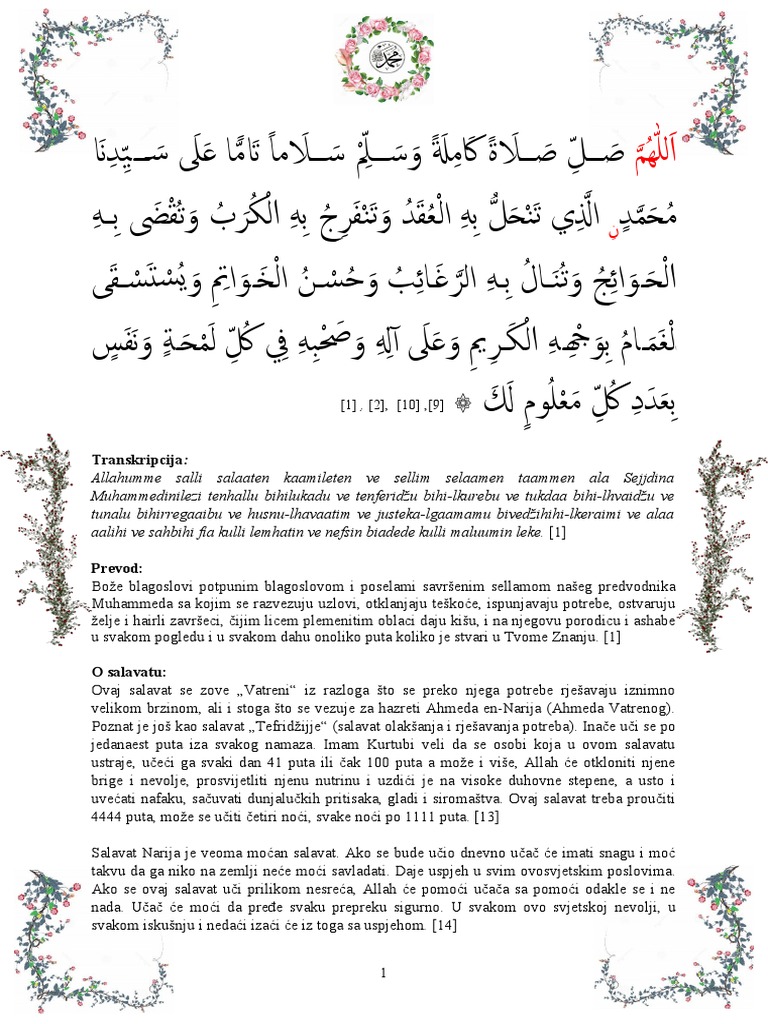 محمد ﷺ
اَللّٰهُمَّ صَلِّ صَلَاةً كَامِلَةً وَسَلِّمْ سَلَاماً تَامًّا عَلَى سَيِّدِنَا
مُحَمَّدٍنِ الَّذِي تَنْحَلُّ بِهِ الْعُقَدُ وَتَنْفَرِجُ بِهِ الْكُرَبُ وَتُقْضَى بِهِ
الْحَوَائِجُ وَتُنَالُ بِهِ الرَّغَائِبُ وَحُسْنُ الْخَوَاتِمِ وَيُسْتَسْقَى
لْغَمَامُ بِوَجْهِهِ الْكَرِيمِ وَعَلَى آلِهِ وَصَحْبِهِ فِي كُلِّ لَمْحَةٍ وَنَفَسٍ
بِعَدَدِ كُلِّ مَعْلُومٍ لَكَ ۞ [9], [10] ,[2] , [1]
Transkripcija:
Allahumme salli salaaten kaamileten ve sellim selaamen taammen ala Sejjdina
Muhammedinilezi tenhallu bihilukadu ve tenferidžu bihi-lkurebu ve tukdaa bihi-lhvaidžu ve
tunalu bihirregaaibu ve husnu-lhavaatim ve justeka-lgaamamu bivedžihihi-lkeraimi ve alaa
aalihi ve sahbihi fia kulli lemhatin ve nefsin biadede kulli maluumin leke. [1]
Prevod:
Bože blagoslovi potpunim blagoslovom i poselami savršenim sellamom našeg predvodnika
Muhammeda sa kojim se razvezuju uzlovi, otklanjaju teškoće, ispunjavaju potrebe, ostvaruju
želje i hairli završeci, čijim licem plemenitim oblaci daju kišu, i na njegovu porodicu i ashabe
u svakom pogledu i u svakom dahu onoliko puta koliko je stvari u Tvome Znanju. [1]
O salavatu:
Ovaj salavat se zove „Vatreni“ iz razloga što se preko njega potrebe rješavaju iznimno
velikom brzinom, ali i stoga što se vezuje za hazreti Ahmeda en-Narija (Ahmeda Vatrenog).
Poznat je još kao salavat „Tefridžijje“ (salavat olakšanja i rješavanja potreba). Inače uči se po
jedanaest puta iza svakog namaza. Imam Kurtubi veli da se osobi koja u ovom salavatu
ustraje, učeći ga svaki dan 41 puta ili čak 100 puta a može i više, Allah će otkloniti njene
brige i nevolje, prosvijetliti njenu nutrinu i uzdići je na visoke duhovne stepene, a usto i
uvećati nafaku, sačuvati dunjalučkih pritisaka, gladi i siromaštva. Ovaj salavat treba proučiti
4444 puta, može se učiti četiri noći, svake noći po 1111 puta. [13]
Salavat Narija je veoma moćan salavat. Ako se bude učio dnevno učač će imati snagu i moć
takvu da ga niko na zemlji neće moći savladati. Daje uspjeh u svim ovosvjetskim poslovima.
Ako se ovaj salavat uči prilikom nesreća, Allah će pomoći učača sa pomoći odakle se i ne
nada. Učač će moći da pređe svaku prepreku sigurno. U svakom ovo svjetskoj nevolji, u
svakom iskušnju i nedaći izaći će iz toga sa uspjehom. [14]
1